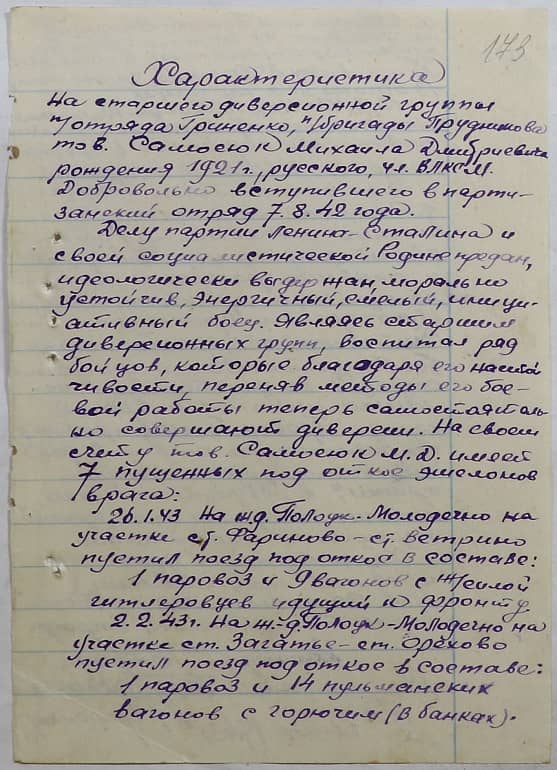 173
Характеристика
На старшего диверсионной группы
п/отряда Гриненко, п/бригады Прудникова
тов. Самосюк Михаила Дмитриевича
рождения 1921г., русского, чл. ВЛКСМ.
Добровольно вступившего в парти-
занский отряд 7.8.42 года.
Делу партии Ленина-Сталина и
своей социалистической Родине предан,
идеологически выдержан, морально
устойчив, энергичный, смелый, иници-
ативный боец. Являясь старшим
диверсионных групп, воспитал ряд
бойцов, которые благодаря его настой
чивости, переняв методы его бое-
вой работы теперь самостоятель
но совершают диверсии. На своем
счету тов. Самосюк М.Д. имеет
7 пущенных под откос эшелонов
врага:
26.1.43 На ж.д. Полоцк-Молодечно на
участке ст. Фариново-ст. Ветрино
пустил поезд под откос в составе:
1 паровоз и 9 вагонов с ж/силой
гитлеровцев идущий к фронту.
2.2.43г. На ж-д. Полоцк-Молодечно на
участке ст. Загатье-ст. Орехово
пустил поезд под откос в составе:
1 паровоз и 14 пульманских
вагонов с горючим (в банках).